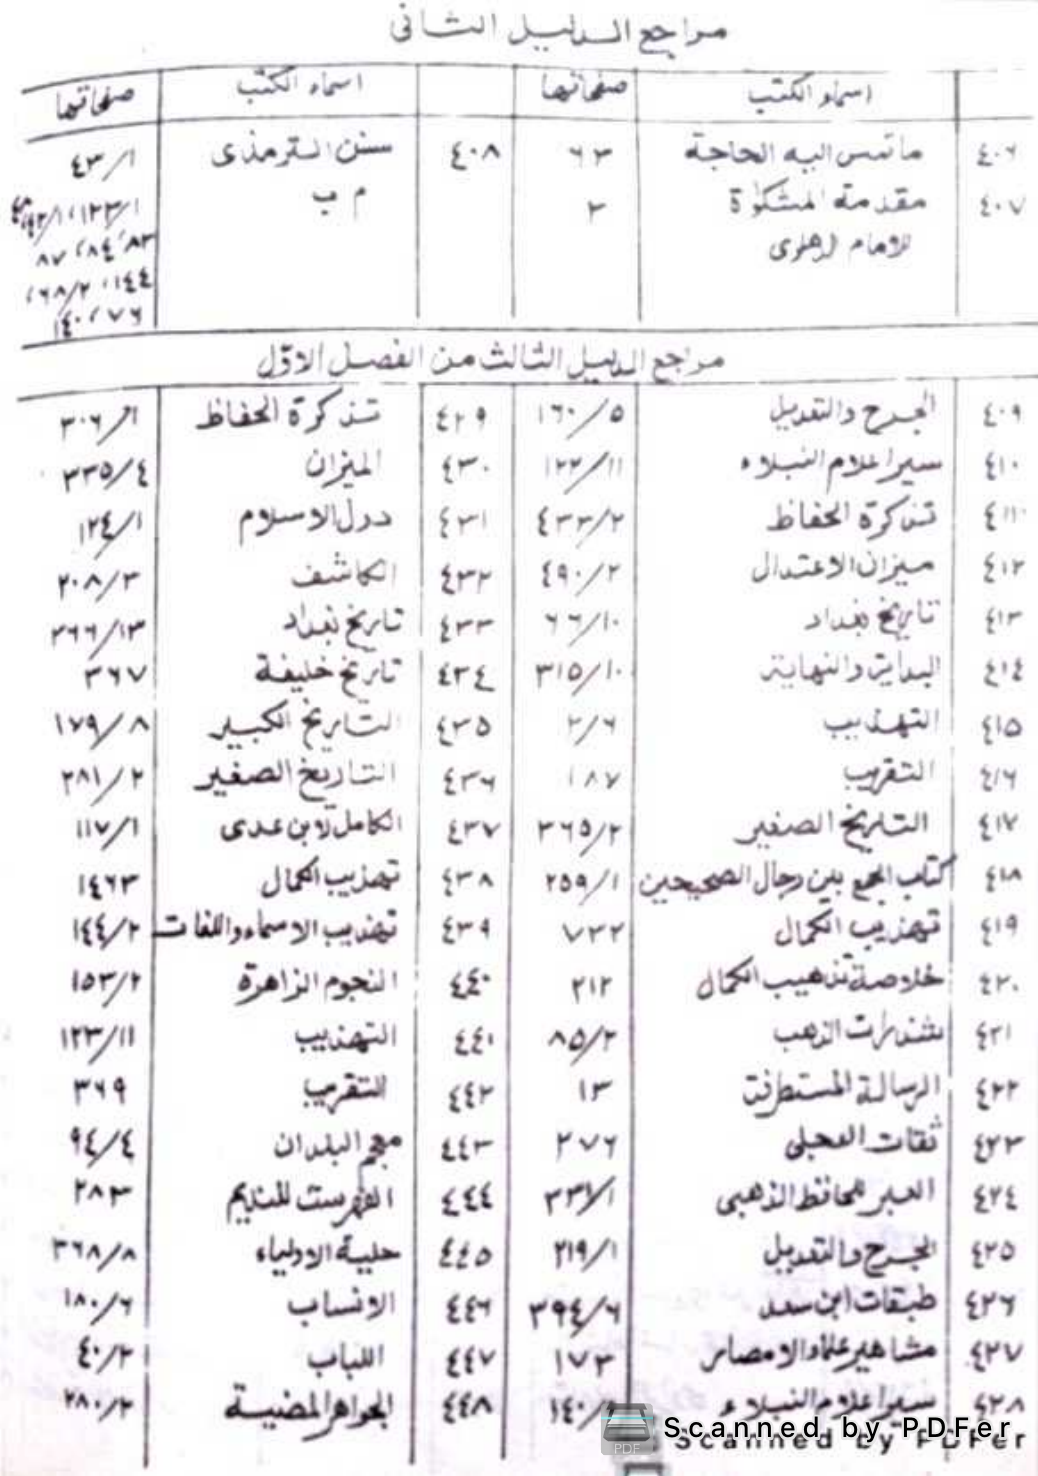 مراجع الدليل الثانى
اسماء الكتب صفحاتها اسماء الكتب صفحاتها
٤٠٦ ما تمس اليه الحاجة ٦٣ ٤٠٨ سنن الترمذى ٤٣/١
٤٠٧ مقدمة المشكوٰة ٣ م ب ١٢٣/١،
للامام الدهلوى ٨٣، ٨٤، ٨٧
١٤٤، ٦٨/٢،
٧٦، ١٤٠
مراجع الدليل الثالث من الفصل الاوّل
٤٠٩ الجرح والتعديل ١٦٠/٥ ٤٢٩ تذكرة الحفاظ ٣٠٦/١
٤١٠ سير اعلام النبلاء ١٢٢/١١ ٤٣٠ الميزان ٣٣٥/٤
٤١١ تذكرة الحفاظ ٤٣٣/٢ ٤٣١ دول الاسلام ١٢٤/١
٤١٢ ميزان الاعتدال ٤٩٠/٢ ٤٣٢ الكاشف ٢٠٨/٣
٤١٣ تاريخ بغداد ٦٦/١٠ ٤٣٣ تاريخ بغداد ٢٦٦/١٣
٤١٤ البداية والنهاية ٣١٥/١٠ ٤٣٤ تاريخ خليفة ٣٦٧
٤١٥ التهذيب ٢/٦ ٤٣٥ التاريخ الكبير ١٧٩/٨
٤١٦ التقريب ١٨٧ ٤٣٦ التاريخ الصغير ٢٨١/٢
٤١٧ التاريخ الصغير ٣٦٥/٢ ٤٣٧ الكامل لابن عدى ١١٧/١
٤١٨ كتاب الجمع بين رجال الصحيحين ٢٥٩/١ ٤٣٨ تهذيب الكمال ١٤٦٣
٤١٩ تهذيب الكمال ٧٣٢ ٤٣٩ تهذيب الاسماء واللغات ١٤٤/٢
٤٢٠ خلاصة تذهيب الكمال ٢١٢ ٤٤٠ النجوم الزاهرة ١٥٣/٢
٤٢١ شذرات الذهب ٨٥/٢ ٤٤١ التهذيب ١٢٣/١١
٤٢٢ الرسالة المستطرفة ١٣ ٤٤٢ التقريب ٣٦٩
٤٢٣ ثقات العجلى ٢٧٦ ٤٤٣ معجم البلدان ٩٤/٤
٤٢٤ العبر للحافظ الذهبى ٤٤٤ الفهرست للنديم ٢٨٣
٤٢٥ الجرح والتعديل ٢١٩/١ ٤٤٥ حلية الاولياء ٣٦٨/٨
٤٢٦ طبقات ابن سعد ٣٩٤/٦ ٤٤٦ الانساب ١٨٠/٦
٤٢٧ مشاهير علماء الامصار ١٧٣ ٤٤٧ اللباب ٤٠/٢
٤٢٨ سير اعلام النبلاء ٤٤٨ الجواهر المضية ٢٨٠/٢
Scanned by PDFer
Scanned by PDFer
PDF